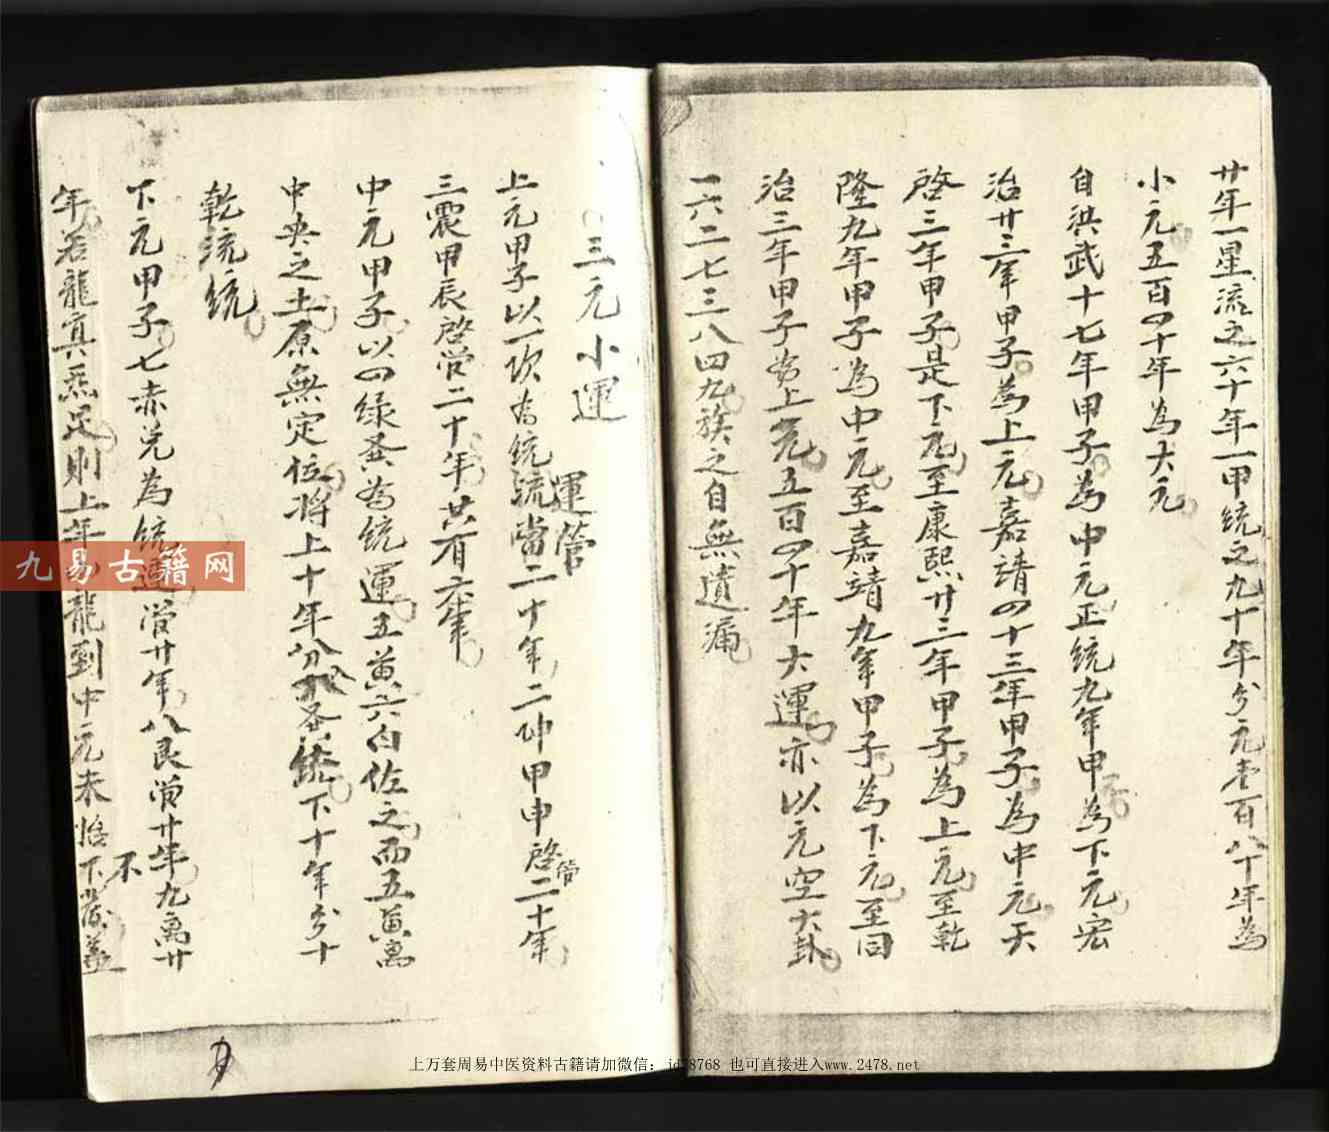 廿年一星流之六十年一甲統之九十年分元壹百八十年為
小元五百四十年為大元
自洪武十七年甲子為中元正統九年甲為下元宏
治廿三年甲子為上元嘉靖四十三年甲子為中元天
啓三年甲子是下元至康熙廿三年甲子為上元至乾
隆九年甲子為中元至嘉靖九年甲子為下元至同
治三年甲子為上元五百四十年大運亦以元空大卦
一六二七三八四九族之自無遺漏
三元小運
運管
上元甲子以一坎為統流當二十年二坤甲申啓管二十年
三震甲辰啓管二十年共有六年
中元甲子以四绿為統運五黄六白佐之而五黄寓
中央之土原無定位將上十年分統下十年分十
乾流統
下元甲子七赤兑為統運管廿年八艮管廿年九离廿
年若龍真炁足則上年龍到中元未恰不下蓋
九易古籍网
上万套周易中医资料古籍请加微信：id78768 也可直接进入www.2478.net